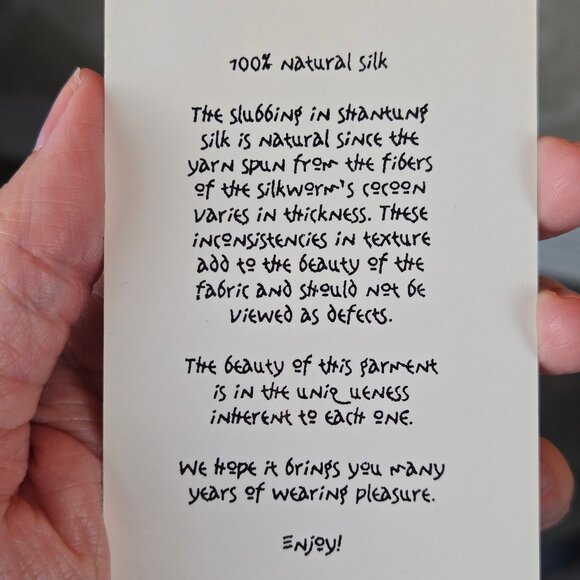 100% Natural Silk
The slubbing in shantung
silk is natural since the
yarn spun from the fibers
of the silkworm's cocoon
varies in thickness. These
inconsistencies in texture
add to the beauty of the
fabric and should not be
viewed as defects.
The beauty of this garment
is in the uniqueness
inherent to each one.
We hope it brings you many
years of wearing pleasure.
Enjoy!